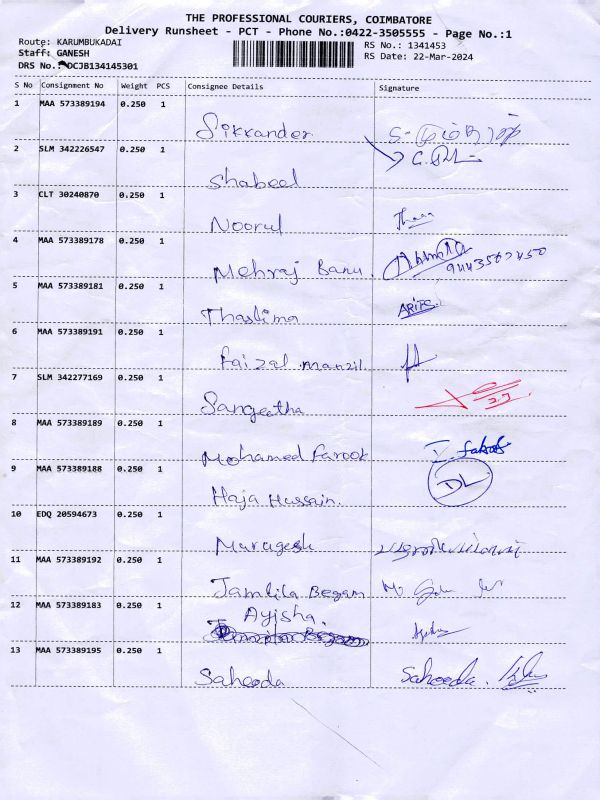 THE PROFESSIONAL COURIERS, COIMBATORE
Delivery Runsheet - PCT - Phone No.:0422-3505555 - Page No.:1
Route: KARUMBUKADAI
RS No.: 1341453
Staff: GANESH
RS Date: 22-Mar-2024
DRS No.: DCJB134145301
S No Consignment No Weight PCS Consignee Details Signature
1 MAA 573389194 0.250 1
Sikkander
2 SLM 342226547 0.250 1
Shabeel
3 CLT 30240870 0.250 1
Noorul
4 MAA 573389178 0.250 1
Mehraj Banu.
9443567450
5 MAA 573389181 0.250 1
Thaslima
6 MAA 573389191 0.250 1
Faizal manzil
7 SLM 342277169 0.250 1
Sangeetha
8 MAA 573389189 0.250 1
Mohamed Farook
9 MAA 573389188 0.250 1
Haja Hussain. DL
10 EDQ 20594673 0.250 1
Murugesh
11 MAA 573389192 0.250 1
Jamlila Begam
12 MAA 573389183 0.250 1
Ayisha.
13 MAA 573389195 0.250 1
Saheeda Saheeda.